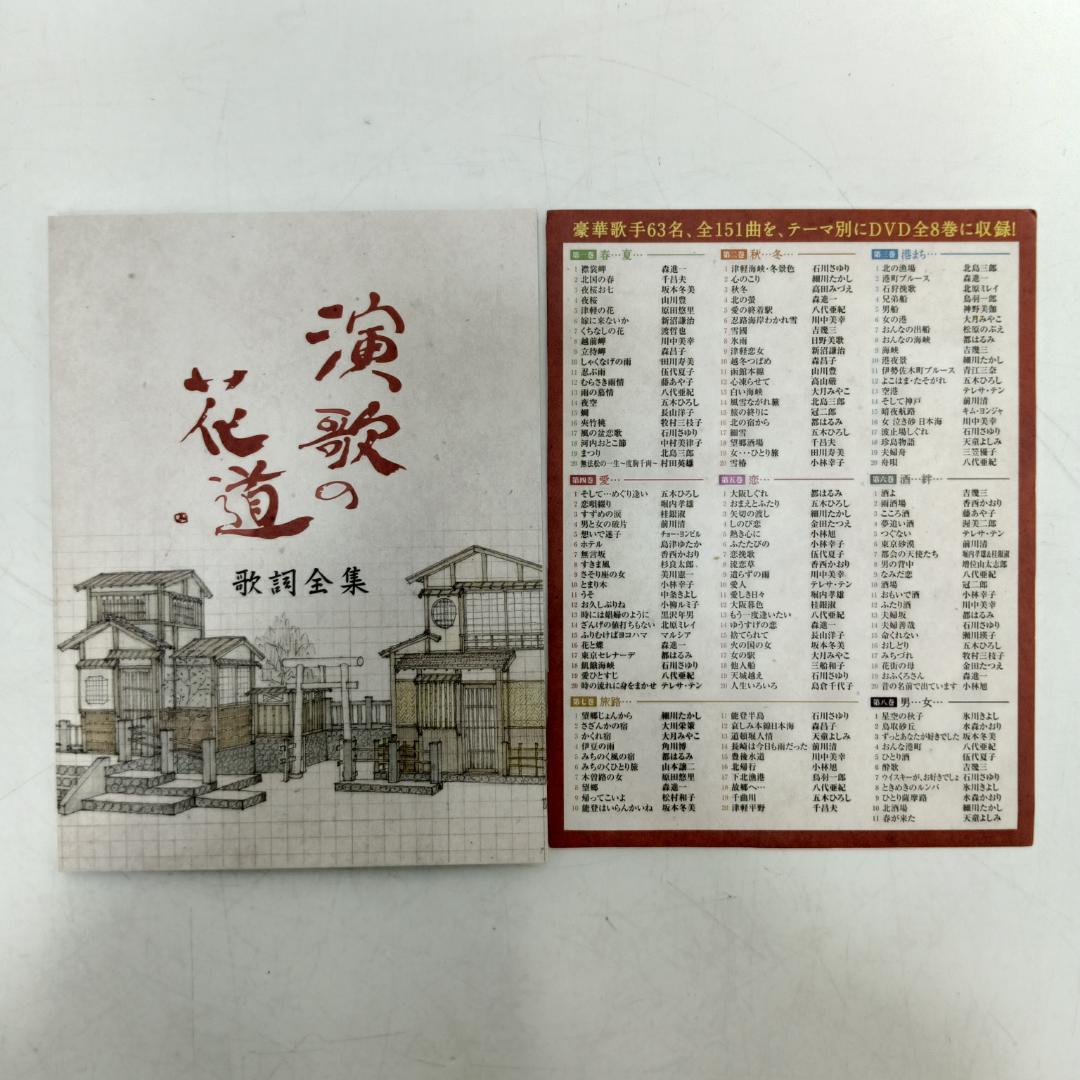 演歌の
花道
歌詞全集
豪華歌手63名、全151曲を、テーマ別にDVD全8巻に収録!
第一巻 春…夏…
1 襟裳岬 森進一
2 北国の春 千昌夫
3 夜桜お七 坂本冬美
4 夜桜 山川豊
5 津軽の花 原田悠里
6 嫁に来ないか 新沼謙治
7 くちなしの花 渡哲也
8 越前岬 川中美幸
9 立待岬 森昌子
10 しゃくなげの雨 田川寿美
11 忍ぶ雨 伍代夏子
12 むらさき雨情 藤あや子
13 雨の慕情 八代亜紀
14 夜空 五木ひろし
15 蜩 長山洋子
16 夾竹桃 牧村三枝子
17 風の盆恋歌 石川さゆり
18 河内おとこ節 中村美律子
19 まつり 北島三郎
20 無法松の一生~度胸千両~ 村田英雄
第二巻 秋…冬…
1 津軽海峡・冬景色 石川さゆり
2 心のこり 細川たかし
3 秋冬 高田みづえ
4 北の螢 森進一
5 愛の終着駅 八代亜紀
6 忍路海岸わかれ雪 川中美幸
7 雪國 吉幾三
8 氷雨 日野美歌
9 津軽恋女 新沼謙治
10 越冬つばめ 森昌子
11 函館本線 山川豊
12 心凍らせて 高山厳
13 白い海峡 大月みやこ
14 風雪ながれ旅 北島三郎
15 旅の終りに 冠二郎
16 北の宿から 都はるみ
17 細雪 五木ひろし
18 望郷酒場 千昌夫
19 女・・・ひとり旅 田川寿美
20 雪椿 小林幸子
第三巻 港まち…
1 北の漁場 北島三郎
2 港町ブルース 森進一
3 石狩挽歌 北原ミレイ
4 兄弟船 鳥羽一郎
5 男船 神野美伽
6 女の港 大月みやこ
7 おんなの出船 松原のぶえ
8 おんなの海峡 都はるみ
9 海峡 吉幾三
10 港夜景 細川たかし
11 伊勢佐木町ブルース 青江三奈
12 よこはま・たそがれ 五木ひろし
13 空港 テレサ・テン
14 そして神戸 前川清
15 暗夜航路 キム・ヨンジャ
16 女 泣き砂 日本海 川中美幸
17 波止場しぐれ 石川さゆり
18 珍島物語 天童よしみ
19 夫婦舟 三笠優子
20 舟唄 八代亜紀
第四巻 愛…
1 そして…めぐり逢い 五木ひろし
2 恋唄綴り 堀内孝雄
3 すずめの涙 桂銀淑
4 男と女の破片 前川清
5 想いで迷子 チョー・ヨンピル
6 ホテル 島津ゆたか
7 無言坂 香西かおり
8 すきま風 杉良太郎
9 さそり座の女 美川憲一
10 とまり木 小林幸子
11 うそ 中条きよし
12 お久しぶりね 小柳ルミ子
13 時には娼婦のように 黒沢年男
14 ざんげの値打ちもない 北原ミレイ
15 ふりむけばヨコハマ マルシア
16 花と蝶 森進一
17 東京セレナーデ 都はるみ
18 飢餓海峡 石川さゆり
19 愛ひとすじ 八代亜紀
20 時の流れに身をまかせ テレサ・テン
第五巻 恋…
1 大阪しぐれ 都はるみ
2 おまえとふたり 五木ひろし
3 矢切の渡し 細川たかし
4 しのび恋 金田たつえ
5 熱き心に 小林旭
6 ふたたびの 小林幸子
7 恋挽歌 伍代夏子
8 流恋草 香西かおり
9 遣らずの雨 川中美幸
10 愛人 テレサ・テン
11 愛しき日々 堀内孝雄
12 大阪暮色 桂銀淑
13 もう一度逢いたい 八代亜紀
14 ゆうすげの恋 森進一
15 捨てられて 長山洋子
16 火の国の女 坂本冬美
17 女の駅 大月みやこ
18 他人船 三船和子
19 天城越え 石川さゆり
20 人生いろいろ 島倉千代子
第六巻 酒…絆…
1 酒よ 吉幾三
2 雨酒場 香西かおり
3 こころ酒 藤あや子
4 夢追い酒 渥美二郎
5 つぐない テレサ・テン
6 東京砂漠 前川清
7 都会の天使たち 堀内孝雄&桂銀淑
8 男の背中 増位山太志郎
9 なみだ恋 八代亜紀
10 酒場 冠二郎
11 おもいで酒 小林幸子
12 ふたり酒 川中美幸
13 夫婦坂 都はるみ
14 夫婦善哉 石川さゆり
15 命くれない 瀬川瑛子
16 おしどり 五木ひろし
17 みちづれ 牧村三枝子
18 花街の母 金田たつえ
19 おふくろさん 森進一
20 昔の名前で出ています 小林旭
第七巻 旅路…
1 望郷じょんから 細川たかし
2 さざんかの宿 大川栄策
3 かくれ宿 大月みやこ
4 伊豆の雨 角川博
5 みちのく風の宿 都はるみ
6 みちのくひとり旅 山本譲二
7 木曽路の女 原田悠里
8 望郷 森進一
9 帰ってこいよ 松村和子
10 能登はいらんかいね 坂本冬美
11 能登半島 石川さゆり
12 哀しみ本線日本海 森昌子
13 道頓堀人情 天童よしみ
14 長崎は今日も雨だった 前川清
15 豊後水道 川中美幸
16 北帰行 小林旭
17 下北漁港 鳥羽一郎
18 故郷へ… 八代亜紀
19 千曲川 五木ひろし
20 津軽平野 千昌夫
第八巻 男…女…
1 星空の秋子 氷川きよし
2 鳥取砂丘 水森かおり
3 ずっとあなたが好きでした 坂本冬美
4 おんな港町 八代亜紀
5 ひとり酒 伍代夏子
6 酔歌 吉幾三
7 ウイスキーが、お好きでしょ 石川さゆり
8 ときめきのルンバ 氷川きよし
9 ひとり薩摩路 水森かおり
10 北酒場 細川たかし
11 春が来た 天童よしみ